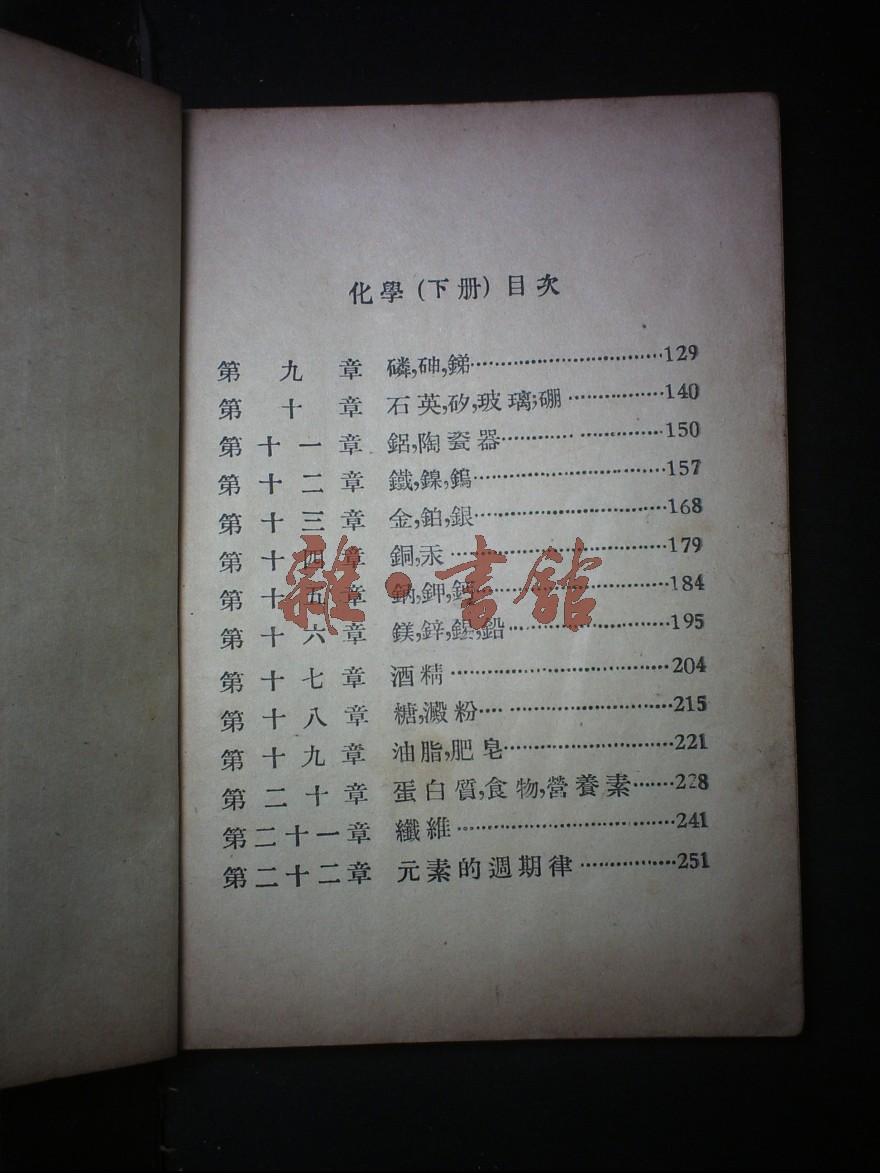 化學(下册)目次
第九章 磷,砷,銻………………………129
第十章 石英,矽,玻璃;硼………………140
第十一章 鋁,陶瓷器………………………150
第十二章 鐵,鎳,鎢………………………157
第十三章 金,鉑,銀………………………168
第十四章 銅,汞………………………179
第十五章 鈉,鉀,………………………184
第十六章 鎂,鋅,錫,鉛………………………195
第十七章 酒精………………………204
第十八章 糖,澱粉………………………215
第十九章 油脂,肥皂………………………221
第二十章 蛋白質,食物,營養素……228
第二十一章 纖維………………………241
第二十二章 元素的週期律………………251
雜·書館